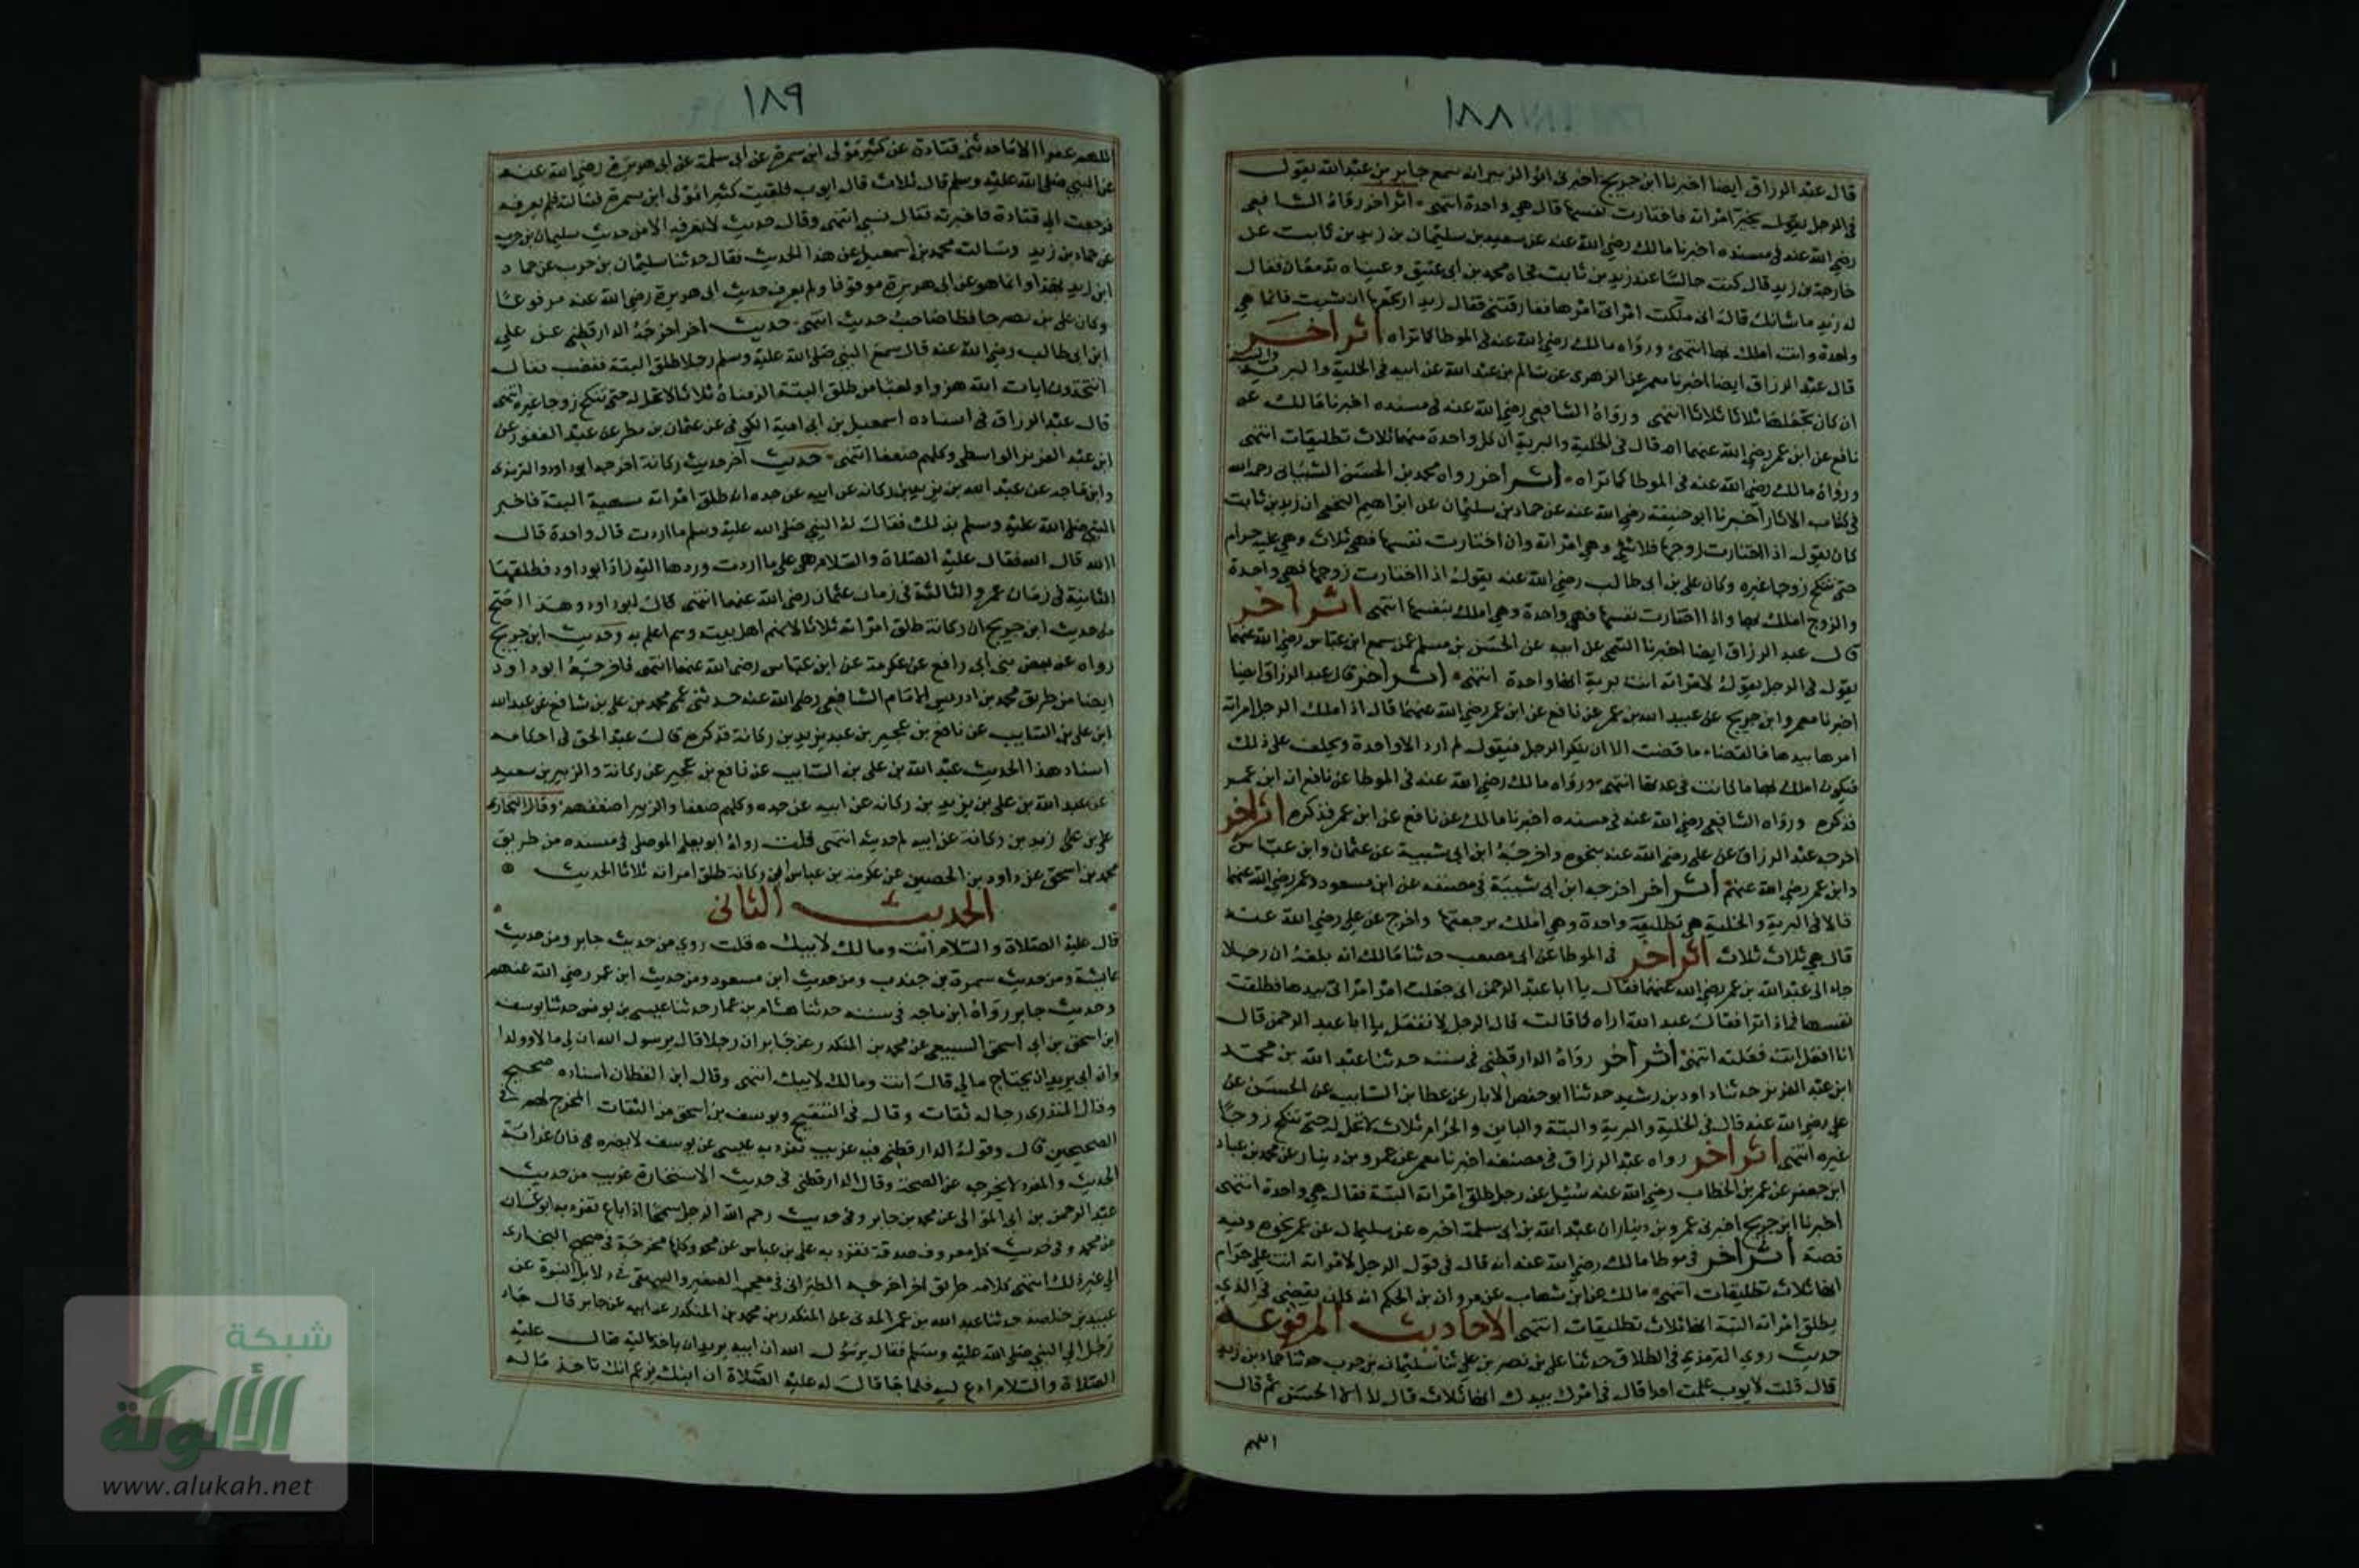 ١٨٨
قال عبد الرزاق ايضا اخبرنا ابن جريج اخبرني ابو الزبير انه سمع جابر بن عبد الله يقول
في الرجل يخير امراته فاختارت نفسها قال هي واحدة انتهى اثر اخر رواه الشافعي
رضي الله عنه في مسنده اخبرنا مالك رضي الله عنه عن سعيد بن سليمان بن زيد بن ثابت عن
خارجة بن زيد قال كنت جالسا عند زيد بن ثابت فجاه محمد بن ابي عتيق وعيناه تدمعان فقال
له زيد ما شانك قال اني ملكت امراتي امرها ففارقتني فقال زيد ارتجعها ان شيت فانما هي
واحدة وانت املك بها انتهى ورواه مالك رضي الله عنه في الموطا كما تراه اثر اخر
قال عبد الرزاق ايضا اخبرنا معمر عن الزهري عن سالم بن عبد الله عن ابيه في الخلية والبرية
والبتة
ان كان يجعلها ثلاثا ثلاثا انتهى ورواه الشافعي رضي الله عنه في مسنده اخبرنا مالك عن
نافع عن ابن عمر رضي الله عنهما انه قال في الخلية والبرية ان كل واحدة منهما ثلاث تطليقات انتهى
ورواه مالك رضي الله عنه في الموطا كما تراه اثر اخر رواه محمد بن الحسن الشيباني رحمه الله
في كتاب الاثار اخبرنا ابو حنيفة رضي الله عنه عن حماد بن سليمان عن ابراهيم النخعي ان زيد بن ثابت
كان يقول اذا اختارت زوجها فلا شي وهي امراته وان اختارت نفسها فهي ثلاث وهي عليه حرام
حتى تنكح زوجا غيره وكان علي بن ابي طالب رضي الله عنه يقول اذا اختارت زوجها فهي واحدة
والزوج املك بها واذا اختارت نفسها فهي واحدة وهي املك بنفسها انتهى اثر اخر
قال عبد الرزاق ايضا اخبرنا التيمي عن ابيه عن الحسن بن مسلم عمن سمع ابن عباس رضي الله عنهما
يقول في الرجل يقول لامراته انت برية انها واحدة انتهى اثر اخر قال عبد الرزاق ايضا
اخبرنا معمر وابن جريج عن عبيد الله بن عمر عن نافع عن ابن عمر رضي الله عنهما قال اذا ملك الرجل امراته
امرها بيدها فالقضاء ما قضت الا ان ينكر الرجل فيقول لم ارد الا واحدة ويحلف على ذلك
فيكون املك بها ما كانت في عدتها انتهى ورواه مالك رضي الله عنه في الموطا عن نافع ان ابن عمر
فذكره ورواه الشافعي رضي الله عنه في مسنده اخبرنا مالك عن نافع عن ابن عمر فذكره اثر اخر
اخرجه عبد الرزاق عن علي رضي الله عنه بنحوه واخرجه ابن ابي شيبة عن عثمان وابن عباس
وابن عمر رضي الله عنهم اثر اخر اخرجه ابن ابي شيبة في مصنفه عن ابن مسعود وعمر رضي الله عنهما
قالا في البرية والخلية هي تطليقة واحدة وهي املك برجعتها واخرج عن علي رضي الله عنه
قال هي ثلاث ثلاث اثر اخر في الموطا عن ابي مصعب حدثنا مالك انه بلغه ان رجلا
جاه الى عبد الله بن عمر رضي الله عنهما فقال يا ابا عبد الرحمن اني جعلت امر امراتي بيدها فطلقت
نفسها فماذا ترا فقال عبد الله اراه كما قالت قال الرجل لا تفعل يا ابا عبد الرحمن قال
انا افعل انت فعلته انتهى اثر اخر رواه الدارقطني في سننه حدثنا عبد الله بن محمد
ابن عبد العزيز حدثنا داود بن رشيد حدثنا ابو حفص الابار عن عطا بن السايب عن الحسن عن
علي رضي الله عنه قال في الخلية والبرية والبتة والباين والحرام ثلاث لا تحل له حتى تنكح زوجا
غيره انتهى اثر اخر رواه عبد الرزاق في مصنفه اخبرنا معمر عن عمرو بن دينار عن محمد بن عباد
ابن جعفر عن عمر بن الخطاب رضي الله عنه سئل عن رجل طلق امراته البتة فقال هي واحدة انتهى
اخبرنا ابن جريج اخبرني عمرو بن دينار ان عبد الله بن ابي سلمة اخبره عن سليمان عن عمر نحوه وفيه
قصة اثر اخر في موطا مالك رضي الله عنه انه قال في قول الرجل لامراته انت علي حرام
انها ثلاث تطليقات انتهى مالك عن ابن شهاب عن مروان بن الحكم انه كان يقضي في الذي
يطلق امراته البتة انها ثلاث تطليقات انتهى الاحاديث المرفوعة
حديث روى الترمذي في الطلاق حدثنا علي بن نصر بن علي ثنا سليمان بن حرب حدثنا حماد بن زيد
قال قلت لايوب علمت احدا قال في امرك بيدك انها ثلاث قال لا الا الحسن ثم قال
اللهم
١٨٩
اللهم غفرا الا ما حدثني قتادة عن كثير مولى ابن سمرة عن ابي سلمة عن ابي هريرة رضي الله عنه
عن النبي صلى الله عليه وسلم قال ثلاث قال ايوب فلقيت كثيرا مولى ابن سمرة فسالته فلم يعرفه
فرجعت الى قتادة فاخبرته فقال نسي انتهى وقال حديث لا نعرفه الا من حديث سليمان بن حرب
عن حماد بن زيد وسالت محمد بن اسمعيل عن هذا الحديث فقال حدثنا سليمان بن حرب عن حماد
ابن زيد بهذا وانما هو عن ابي هريرة موقوفا ولم يعرف حديث ابي هريرة رضي الله عنه مرفوعا
وكان علي بن نصر حافظا صاحب حديث انتهى حديث اخر اخرجه الدارقطني عن علي
ابن ابي طالب رضي الله عنه قال سمع النبي صلى الله عليه وسلم رجلا طلق البتة فغضب فقال
اتتخذون ايات الله هزوا ولعبا من طلق البتة الزمناه ثلاثا لا تحل له حتى تنكح زوجا غيره انتهى
قال عبد الرزاق في اسناده اسمعيل بن ابي امية الكوفي عن عثمان بن مطر عن عبد الغفور عن
ابن عبد العزيز الواسطي وكلهم ضعفا انتهى حديث آخر حديث ركانة اخرجه ابو داود والترمذي
وابن ماجه عن عبد الله بن يزيد بن ركانه عن ابيه عن جده انه طلق امراته سهمية البتة فاخبر
النبي صلى الله عليه وسلم بذلك فقال له النبي صلى الله عليه وسلم ما اردت قال واحدة قال
الله قال الله فقال عليه الصلاة والسلام هي على ما اردت وردها اليه زاد ابو داود فطلقها
الثانية في زمان عمر والثالثة في زمان عثمان رضي الله عنهما انتهى قال ابو داود وهذا اصح
من حديث ابن جريج ان ركانة طلق امراته ثلاثا لانهم اهل بيته وهم اعلم به وحديث ابن جريج
رواه عن بعض بني ابي رافع عن عكرمة عن ابن عباس رضي الله عنهما انتهى فاخرجه ابو داود
ايضا من طريق محمد بن ادريس الامام الشافعي رضي الله عنه حدثني عمي محمد بن علي بن شافع عن عبد الله
ابن علي بن السايب عن نافع بن عجير بن عبد يزيد بن ركانة فذكره قال عبد الحق في احكامه
اسناد هذا الحديث عبد الله بن علي بن السايب عن نافع بن عجير عن ركانة والزبير بن سعيد
عن عبد الله بن علي بن يزيد بن ركانه عن ابيه عن جده وكلهم ضعفا والزبير اضعفهم وقال البخاري
علي بن يزيد بن ركانة عن ابيه لم حديثه انتهى قلت رواه ابو يعلى الموصلي في مسنده من طريق
محمد بن اسحق عن داود بن الحصين عن عكرمة بن عباس ان ركانة طلق امراته ثلاثا الحديث
الحديث الثاني
قال عليه الصلاة والسلام انت ومالك لابيك قلت روي من حديث جابر ومن حديث
عايشة ومن حديث سمرة بن جندب ومن حديث ابن مسعود ومن حديث ابن عمر رضي الله عنهم
وحديث جابر رواه ابن ماجه في سننه حدثنا هشام بن عمار حدثنا عيسى بن يونس حدثنا يوسف
ابن اسحق بن ابي اسحق السبيعي عن محمد بن المنكدر عن جابر ان رجلا قال يرسول الله ان لي مالا وولدا
وان ابي يريد ان يجتاح مالي قال انت ومالك لابيك انتهى وقال ابن القطان اسناده صحيح
وقال المنذري رجاله ثقات وقال في التنقيح ويوسف بن اسحق من الثقات المخرج لهم في
الصحيحين قال وقول الدارقطني فيه غريب تفرد به عيسى عن يوسف لا يضره فان غرابة
الحديث والتفرد لا يخرجه عن الصحة وقال الدارقطني في حديث الاستخارة غريب من حديث
عبد الرحمن بن ابي الموالى عن محمد بن جابر وفي حديث رحم الله الرجل سمحا اذا باع تفرد به ابو غسان
عن محمد وفي حديث كل معروف صدقة تفرد به علي بن عباس عن محمد وكلها مخرجة في صحيح البخاري
الى غير ذلك انتهى كلامه طريق اخر اخرجه الطبراني في معجمه الصغير والبيهقي في دلايل النبوة عن
عبيد بن خلصة حدثنا عبد الله بن عمر المدني عن المنكدر بن محمد بن المنكدر عن ابيه عن جابر قال جاء
رجل الى النبي صلى الله عليه وسلم فقال يرسول الله ان ابيه يريد ان ياخذ ماليه فقال عليه
الصلاة والسلام ادع ليه فلما جا قال له عليه الصلاة ان ابنك يزعم انك تاخذ ماله
شبكة
الألوكة
www.alukah.net